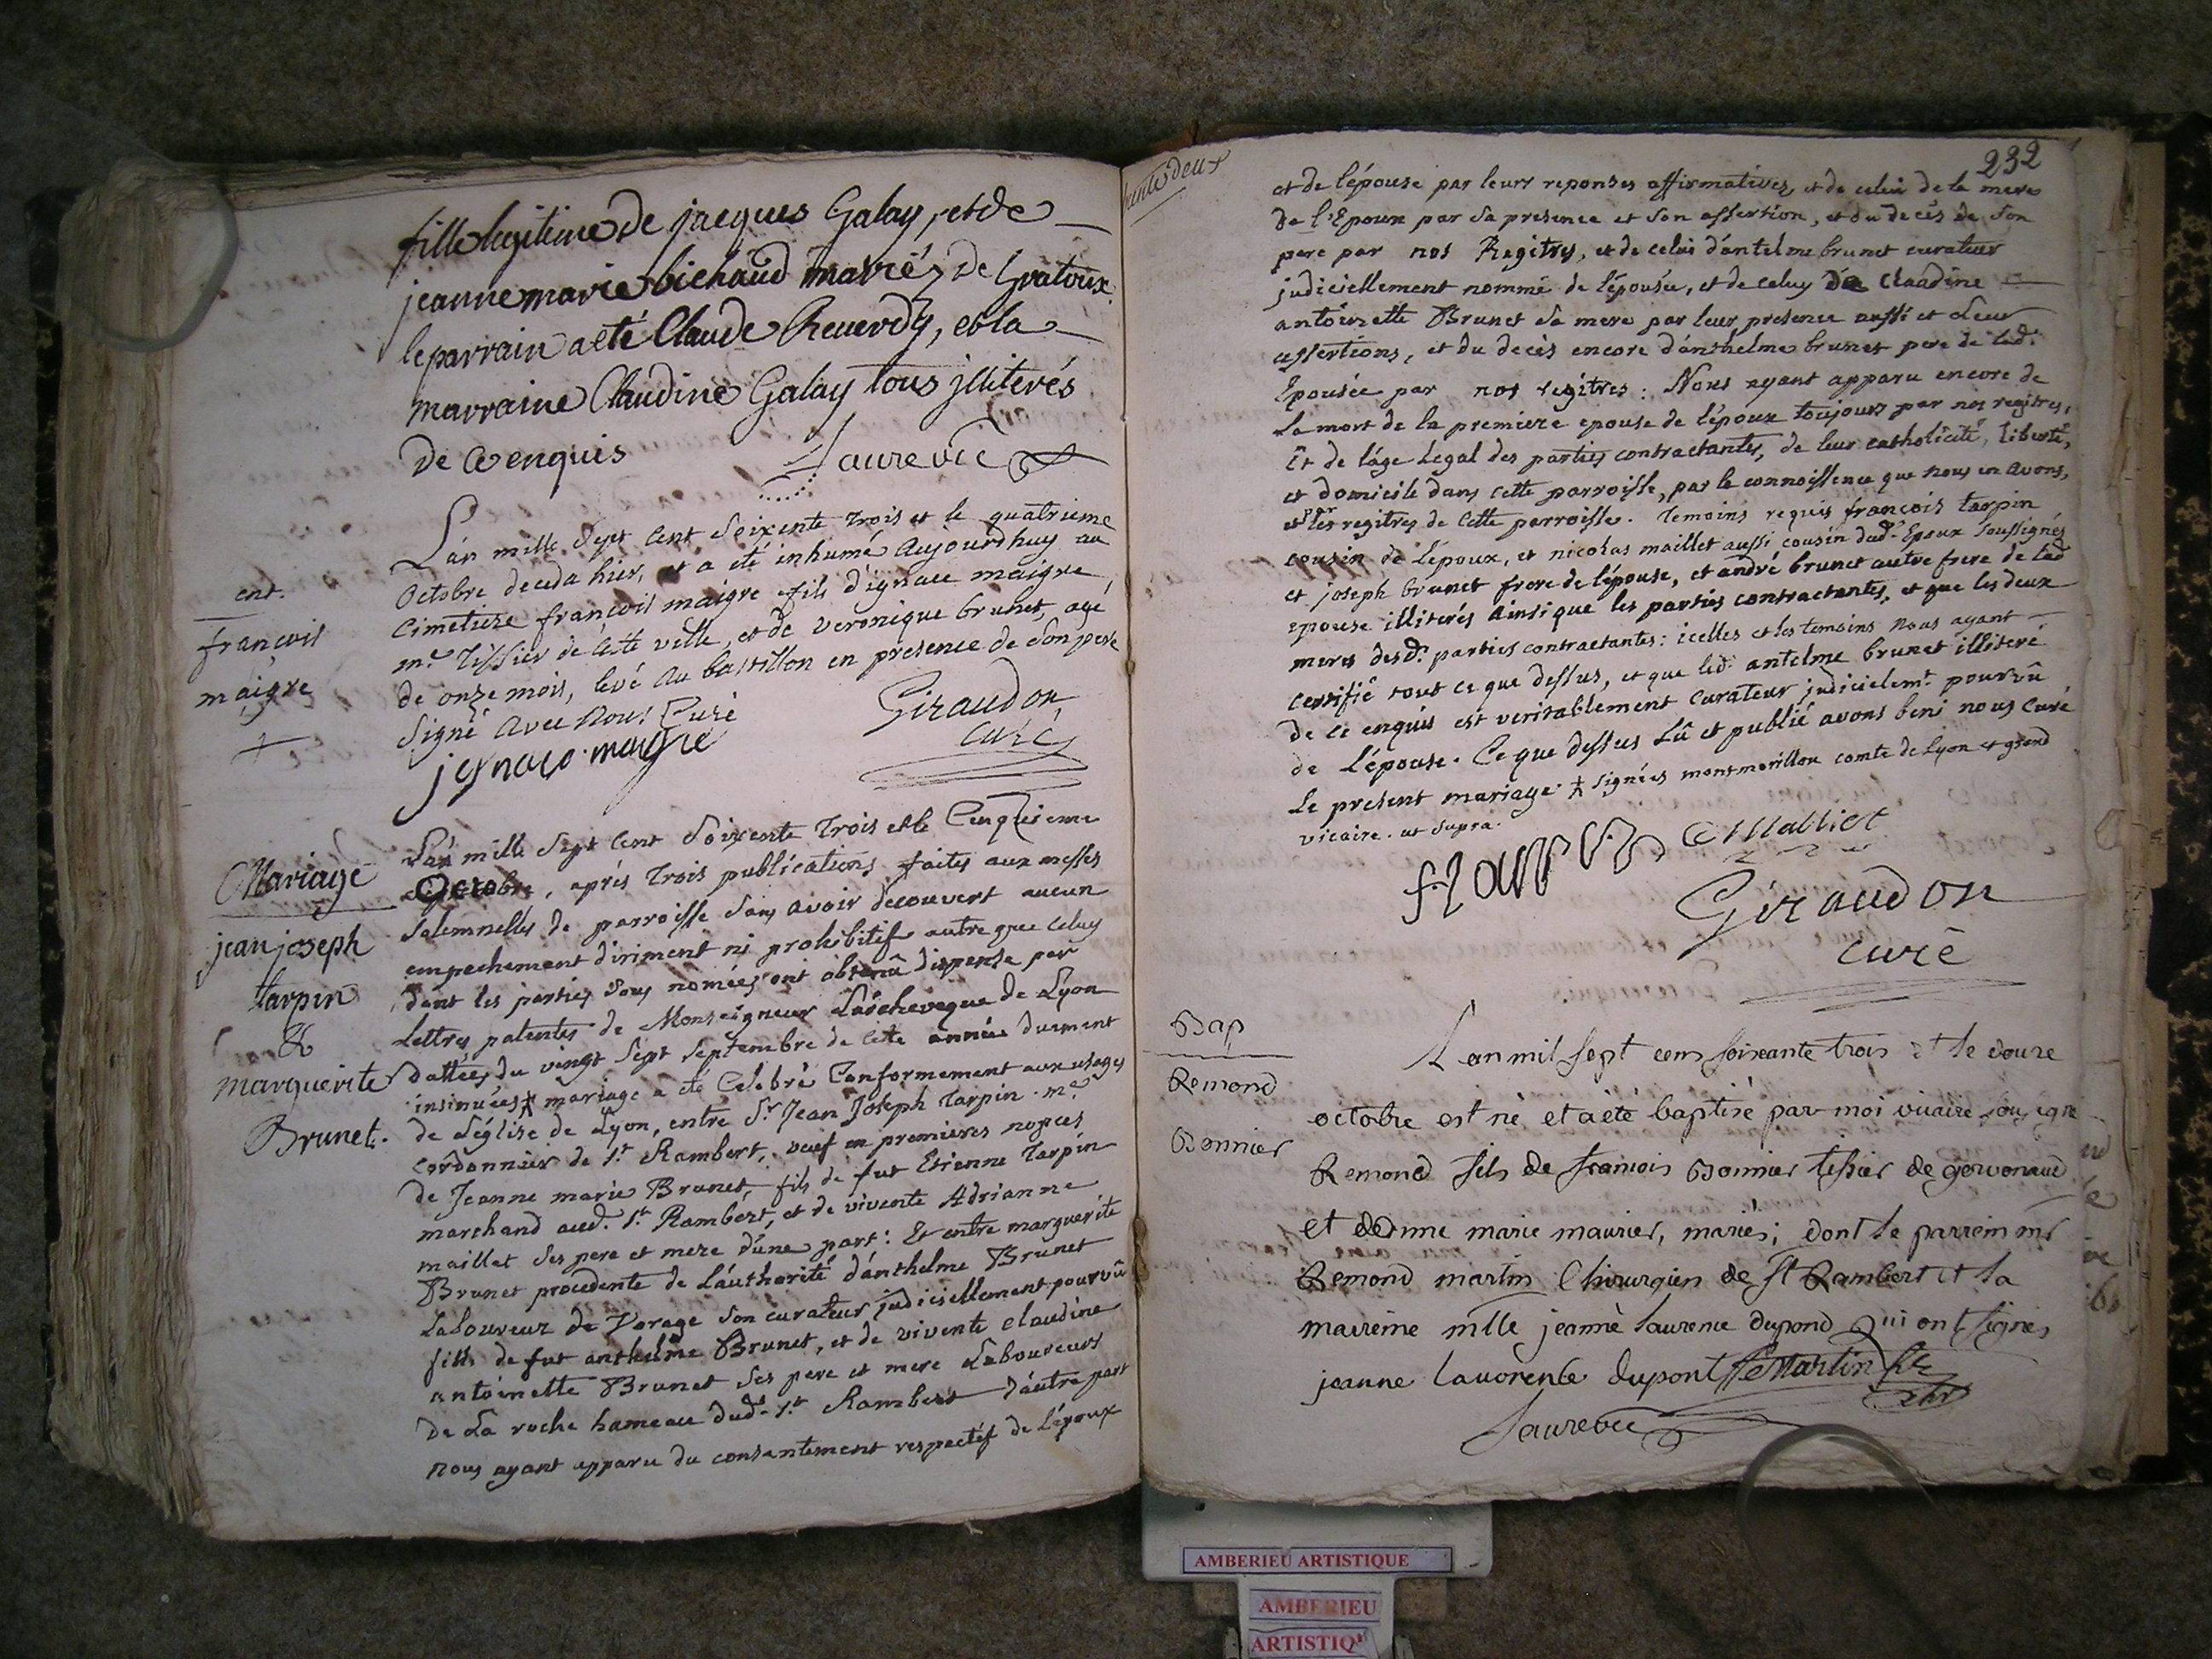 fille legitime de jacques Galay, et de
jeanne marie bichaud mariés de Gratoux.
le parrain a eté Claude Reverdy, et la
marraine Claudine Galay tous jlliterés
de ce enquis Laure vic
ent.
françois
maigre
L'an mille sept cent soixente trois et le quatrieme
Octobre deceda hier, et a été inhumé aujourd'huy au
Cimetiere françois maigre fils d'ignace maigre,
me. tissier de cette ville, et de veronique brunet, agé
de onze mois, levé au bastillon en presence de son pere
signé avec nous Curé Giraudon
jgnace maigre curé
Mariage
jean joseph
tarpin
&
marguerite
Brunet.
L'an mille sept cent soixente trois et le Cinquieme
Octobre, après trois publications faites aux messes
solemnelles de parroisse sans avoir decouvert aucun
empechement diriment ni prohibitif autre que celuy
dont les parties sous nomées ont obtenû dispense par
Lettres patentes de Monseigneur L'archeveque de Lyon
dattées du vingt sept septembre de cette année duement
insinuées ⁜ mariage a eté Celebré Conformement aux usages
de L'église de Lyon, entre Sr. Jean Joseph tarpin me.
cordonnier de St. Rambert, veuf en premieres nopces
de Jeanne marie Brunet, fils de fut Etienne tarpin
marchand aud. St. Rambert, et de vivente Adrianne
maillet ses pere et mere d'une part: Et entre marguerite
Brunet procedente de L'authorité d'anthelme Brunet
Laboureur de Vorage son curateur judiciellement pourvû
fille de fut anthelme Brunet, et de vivente claudine
antoinette Brunet ses pere et mere Laboureurs
de La roche hameau dud. St. Rambert d'autre part
nous ayant apparu du consentement respectif de L'époux
232
et de l'épouse par leurs reponses affirmatives, et de celui de la mere
de l'Epoux par sa presence et son assertion, et du decès de son
pere par nos Regitres, et de celui d'antelme brunet curateur
judiciellement nommé de l'épousée, et de celuy de Claudine
antoinette Brunet sa mere par leur presence aussi et leur
assertions, et du decès encore d'anthelme brunet pere de lad.
Epousée par nos regitres: Nous ayant apparu encore de
La mort de la premiere epouse de l'époux toujours par nos regitres,
Et de l'áge légal des parties contractantes, de leur catholicité, liberté,
et domicile dans cette parroisse, par le connoissence que nous en avons,
et par les regitres de cette parroisse. temoins requis françois tarpin
cousin de l'époux, et nicolas maillet aussi cousin dud. Epoux soussignés
et joseph brunet frere de l'épouse, et andré brunet autre frere de lad
epouse illiterés ainsi que les parties contractantes, et que les deux
meres desd. parties contractantes: icelles et les temoins nous ayant
certifié tout ce que dessus, et que led. antelme brunet illiteré
de ce enquis est veritablement curateur judicielemt. pourvû
de L'épouse. Ce que dessus Lû et publié avons beni nous Curé
Le present mariage ⁜ signées montmorillon comte de Lyon et grand
vicaire. ut supra.
f. tarpin Maillet
Giraudon
curé
Bap
Remond
Bonnier
L an mil sept cens soixante trois et le douze
octobre est né et a été baptisé par moi vicaire sousigné
Remond fils de francois Bonnier tissier de gorvonaud
et de anne marie maurier, mariés; dont le parrein mr
Remond martin Chirurgien de st Rambert et la
maireine mlle jeanne laurence dupond qui ont signés
jeanne lauorence dupont R Martin fils
Laure vic
AMBERIEU ARTISTIQUE
AMBERIEU
ARTISTIQ